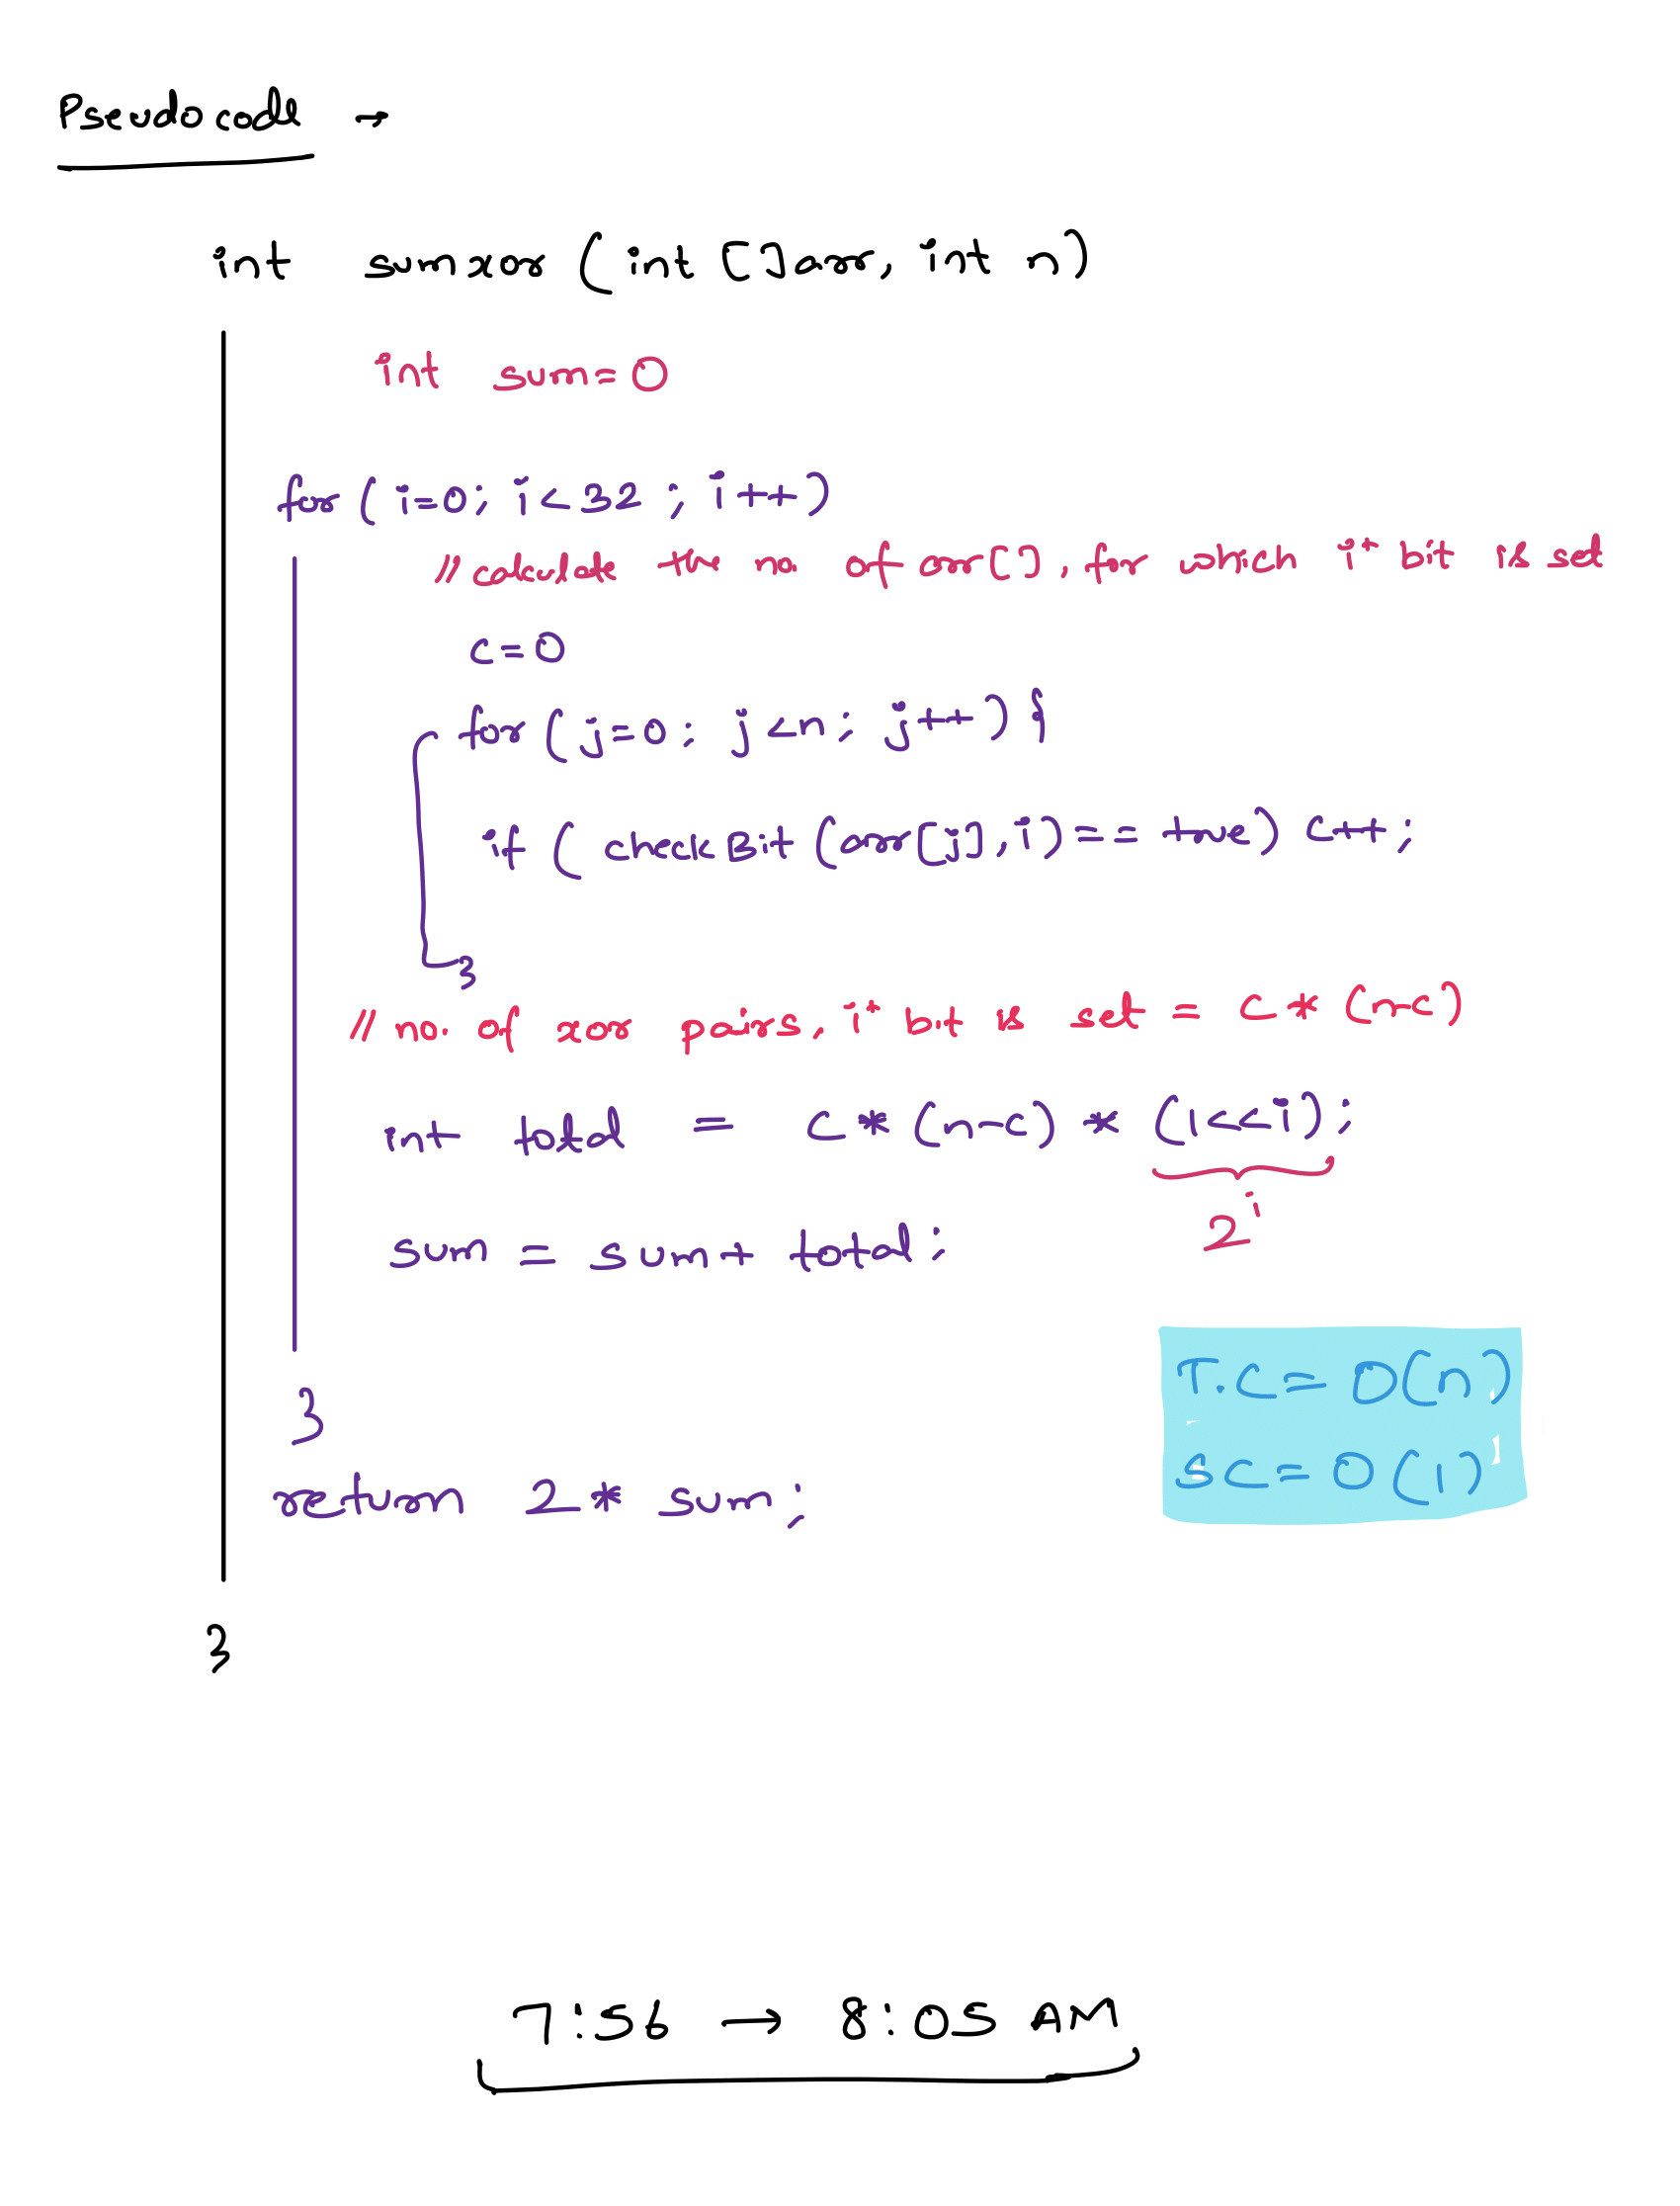 Pseudocode →
int sumxor (int []arr, int n)
int sum=0
for( i=0; i<32 ; i++)
// calculate the no. of arr[], for which iᵗ bit is set
c=0
for (j=0; j<n; j++) {
if ( checkBit (arr[j], i)== true) c++;
}
// no. of xor pairs, iᵗ bit is set = c * (n-c)
int total = c * (n-c) * (1<<i);
2ⁱ
sum = sum+ total;
}
T.C= O(n)
SC= O(1)
return 2 * sum;
}
7:56 → 8:05 AM